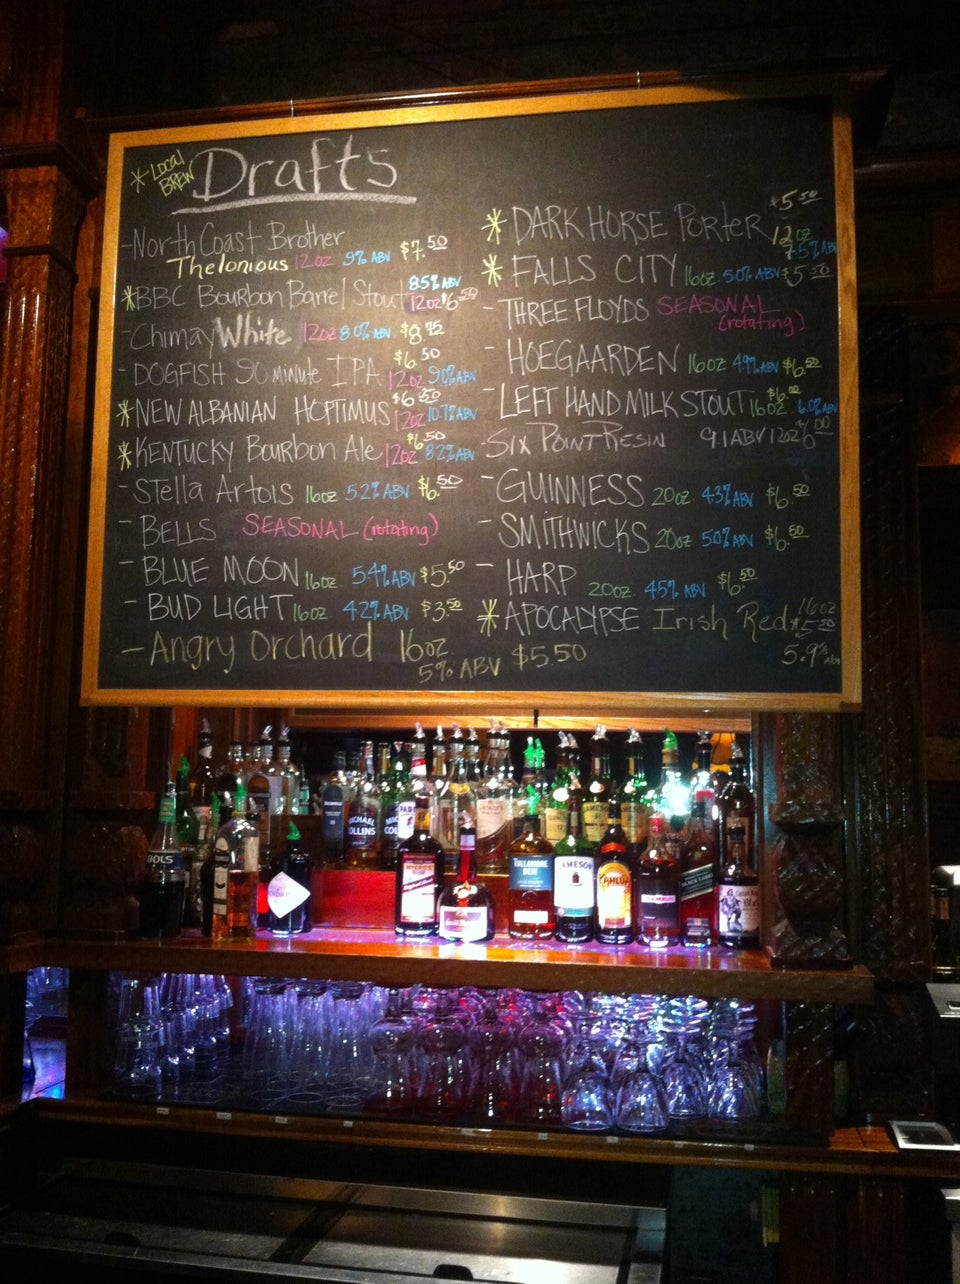 * LOCAL BREW
Drafts
- North Coast Brother
Thelonious 12oz 9% ABV $7.50
* BBC Bourbon Barrel Stout 12oz 8.5% ABV $6.50
- Chimay White 12oz 8.0% ABV $8.75
- DOGFISH 90 minute IPA 12oz 9.0% ABV $6.50
* NEW ALBANIAN HOPTIMUS 12oz 10.7% ABV $6.50
* KENTUCKY Bourbon Ale 12oz 8.2% ABV $6.50
- Stella Artois 16oz 5.2% ABV $6.50
- BELLS SEASONAL (rotating)
- BLUE MOON 16oz 5.4% ABV $5.50
- BUD LIGHT 16oz 4.2% ABV $3.50
- Angry Orchard 16oz
5% ABV $5.50
* DARK HORSE Porter 12oz 7.5% ABV $5.50
* FALLS CITY 16oz 5.0% ABV $5.50
- THREE FLOYDS SEASONAL
(rotating)
- HOEGAARDEN 16oz 4.9% ABV $6.50
- LEFT HAND MILK STOUT 16oz 6.0% ABV $6.00
- SIX POINT RESIN 9.1 ABV 12oz $6.00
- GUINNESS 20oz 4.3% ABV $6.50
- SMITHWICKS 20oz 5.0% ABV $6.50
- HARP 20oz 4.5% ABV $6.50
* APOCALYPSE Irish Red 16oz $5.50
5.9% ABV
BOLS
MICHAEL COLLINS
TULLAMORE DEW
JAMESON
KAHLUA
BLACK LABEL